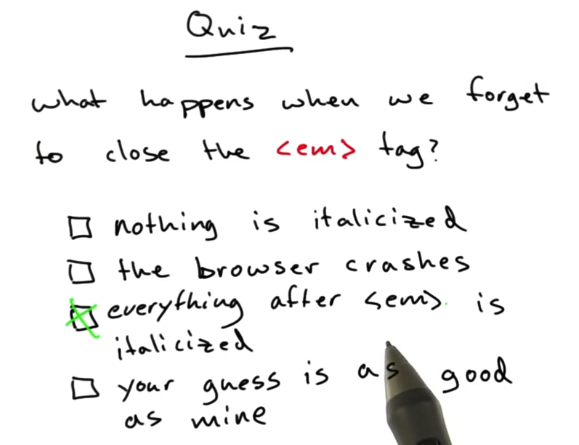 Quiz
what happens when we forget
to close the <em> tag?
nothing is italicized
the browser crashes
everything after <em> is
italicized
your guess is as good
as mine